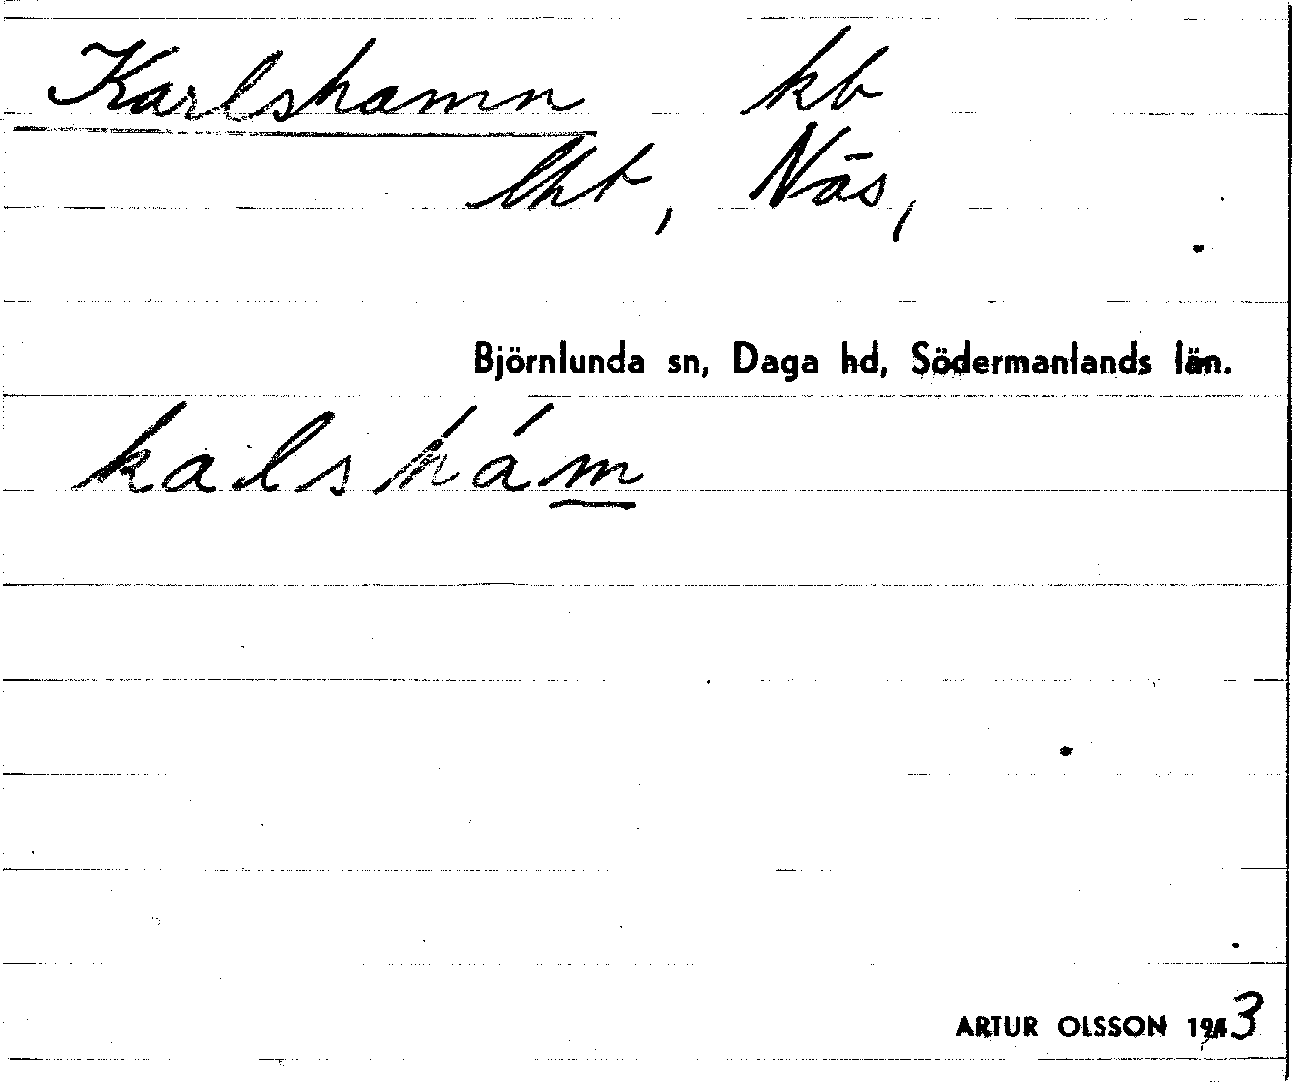 Karlshamn kb
lht, Näs,
Björnlunda sn, Daga hd, Södermanlands län.
kalshám
ARTUR OLSSON 1943